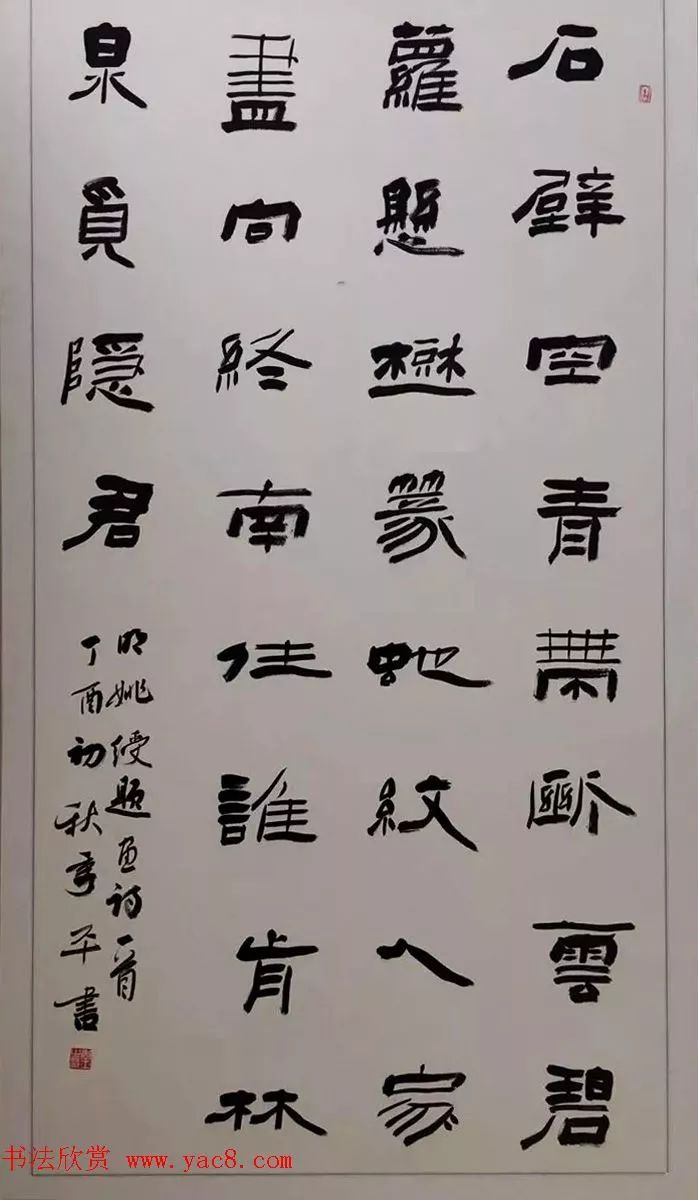 石壁空青帶斷雲碧
蘿懸篆虵紋人家
盡向終南住誰肯林
泉覓隱君
明姚綬題画詩一首
丁酉初秋平書
书法欣赏 www.yac8.com